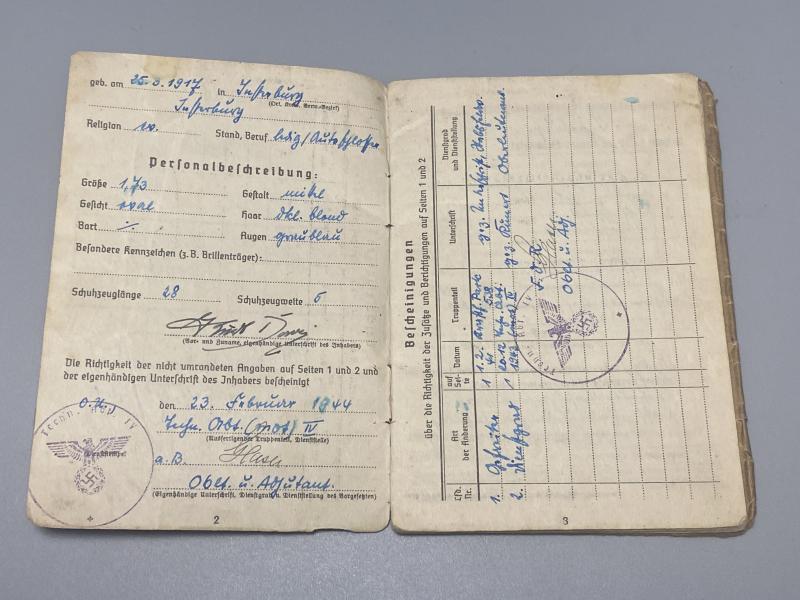 geb. am 25.3.1917 in Insterburg
(Ort, Kreis, Verw.-Bezirk)
Insterburg
Religion ev. Stand, Beruf ledig/Autoschlosser
Personalbeschreibung:
Größe 1,73 Gestalt mittel
Gesicht oval Haar dkl. blond
Bart ·/· Augen graublau
Besondere Kennzeichen (z.B. Brillenträger):
Schuhzeuglänge 28 Schuhzeugweite 5
(Vor- und Zuname, eigenhändige Unterschrift des Inhabers)
Die Richtigkeit der nicht umrandeten Angaben auf Seiten 1 und 2 und
der eigenhändigen Unterschrift des Inhabers bescheinigt
O.U., den 23. Februar 1944
Techn. Abt. (mot) IV
(Ausfertigender Truppenteil, Dienststelle)
Techn. Abt. IV
Dienststempel
Oblt. u. Adjutant.
(Eigenhändige Unterschrift, Dienstgrad u. Dienststellung des Vorgesetzten)
2
Bescheinigungen
über die Richtigkeit der Zusätze und Berichtigungen auf Seiten 1 und 2
Lfd. Nr. Art der Änderung auf Seite Datum Truppenteil Unterschrift Dienstgrad und Dienststellung
1. Gefreiter 1 1.2. gez. Unterschrift
2. Dienstgrad 1 20.12. 1943 Techn. Abt. (mot) IV gez. Oberleutnant
F.d.R.
Oblt. u. Adj.
Techn. Abt. IV
3